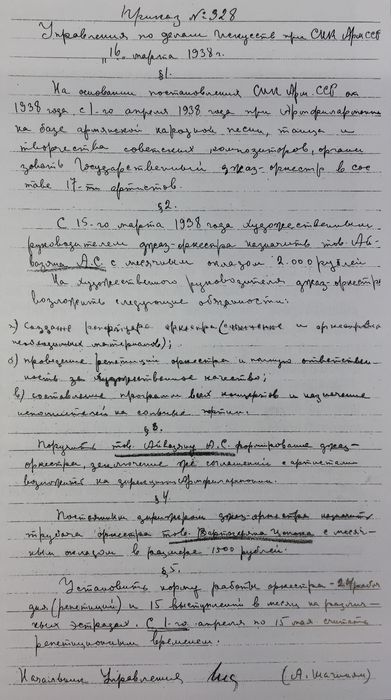 Приказ № 328
Управления по делам Искусств при СНК Арм ССР
„16„ марта 1938 г.
§1.
На основании постановления СНК Арм. ССР от
1938 года с 1-го апреля 1938 года при Армфилармонии
на базе армянской народной песни, танца и
творчества советских композиторов, органи
зовать Государственный джаз-оркестр в сос
таве 17-ти артистов.
§2.
С 15-го марта 1938 года художественным
руководителем джаз-оркестра назначить тов. Ай-
вазяна А.С. с месячным окладом 2.000 рублей
На художественного руководителя джаз-оркестра
возложить следующие обязанности:
а) создание репертуара оркестра (и оркестровка
необходимых материалов);
б) проведение репетиций оркестра и полную ответствен-
ность за художественное качество;
в) составление программ всех концертов и назначение
исполнителей на сольные партии.
§3.
Поручить тов. Айвазяну А.С. формирование джаз-
оркестра, заключение же соглашений с артистами
возложить на дирекцию Армфилармонии.
§4
Постоянным дирижером джаз-оркестра назначить
трубача оркестра тов. Вартазаряна Цолака с месяч-
ным окладом в размере 1500 рублей.
§5.
Установить норму работы оркестра - 24 рабочих
дня (репетиций) и 15 выступлений в месяц на различ-
ных эстрадах. С 1-го апреля по 15 мая считать
репетиционным временем.
Начальник Управления (А. Шагинян)